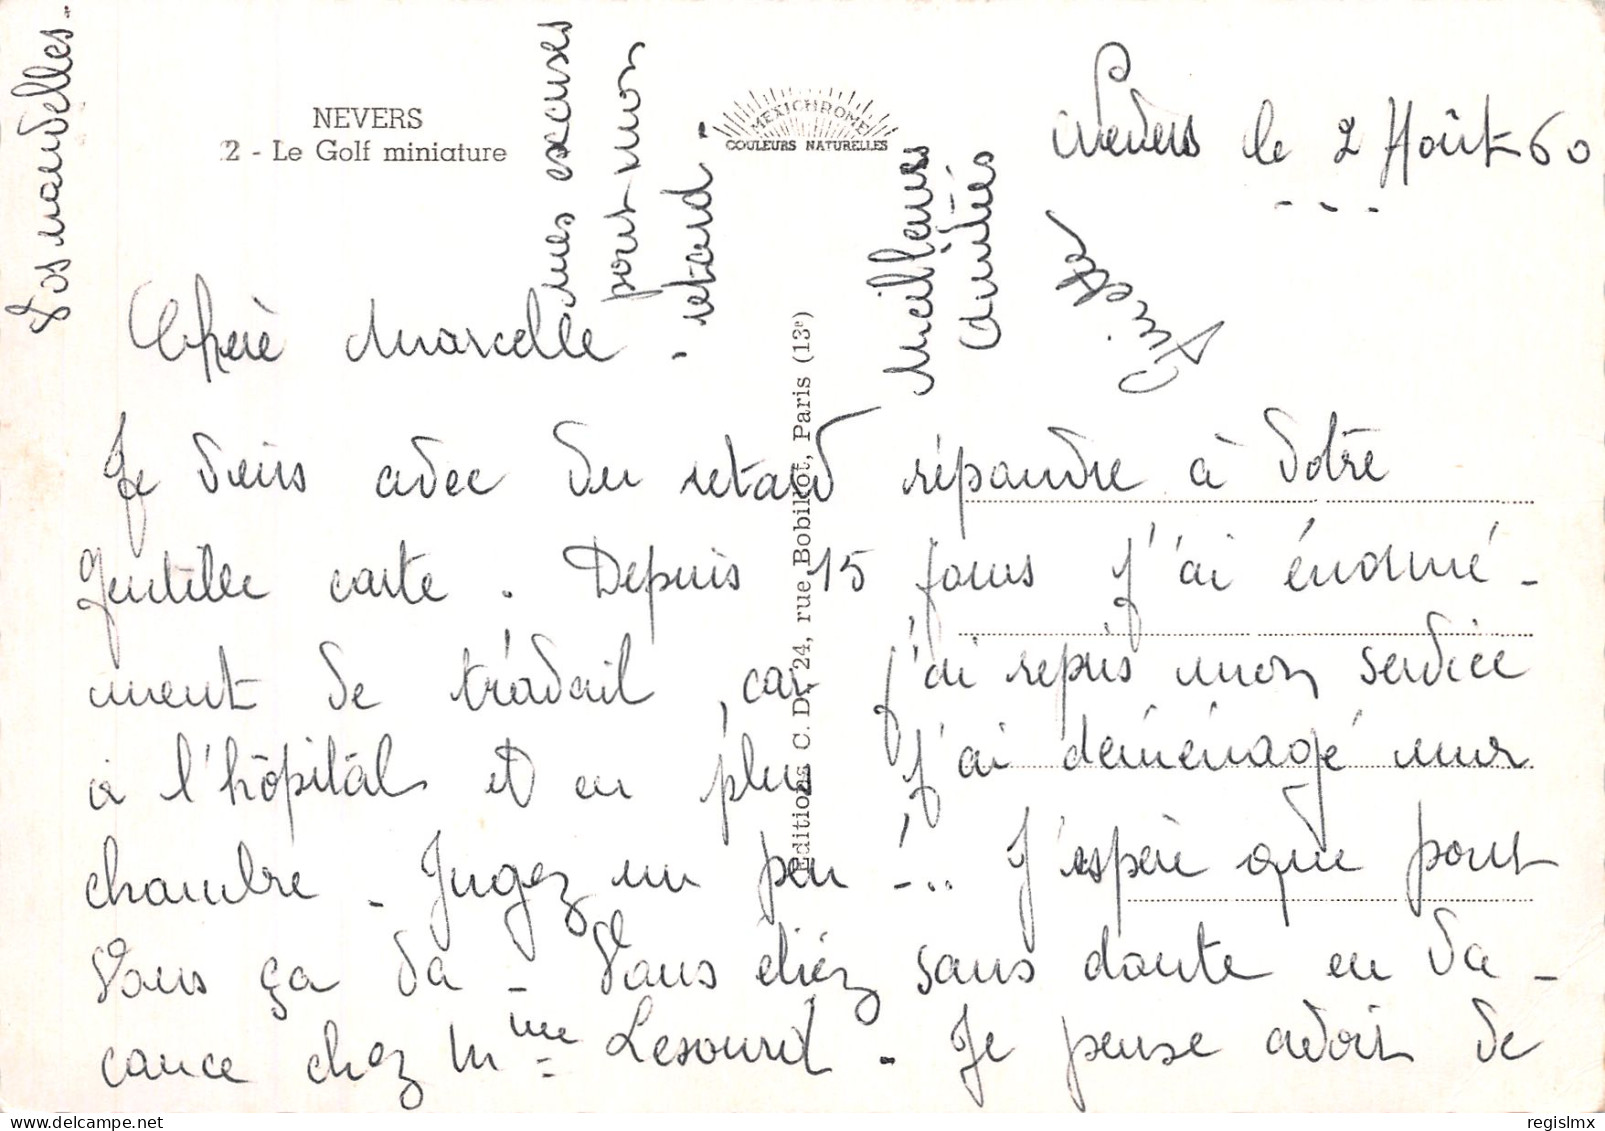 NEVERS
2 - Le Golf miniature
MEXICHROME
COULEURS NATURELLES
Editions C. D. 24, rue Bobillot, Paris (13e)
Nevers le 2 Août 60
Chère Marcelle -
Je viens avec du retard répondre à votre
gentille carte. Depuis 15 jours j'ai énormé-
ment de travail, car j'ai repris mon service
à l'hôpital et en plus j'ai déménagé mon
chambre. Jugez un peu !... J'espère que pour
vous ça va - Vous étiez sans doute en va-
cance chez Mme Lesourd. Je pense avoir de
vos nouvelles.
mes excuses
pour mon
retard.
Meilleurs
amitiés
Ginette
regislmx